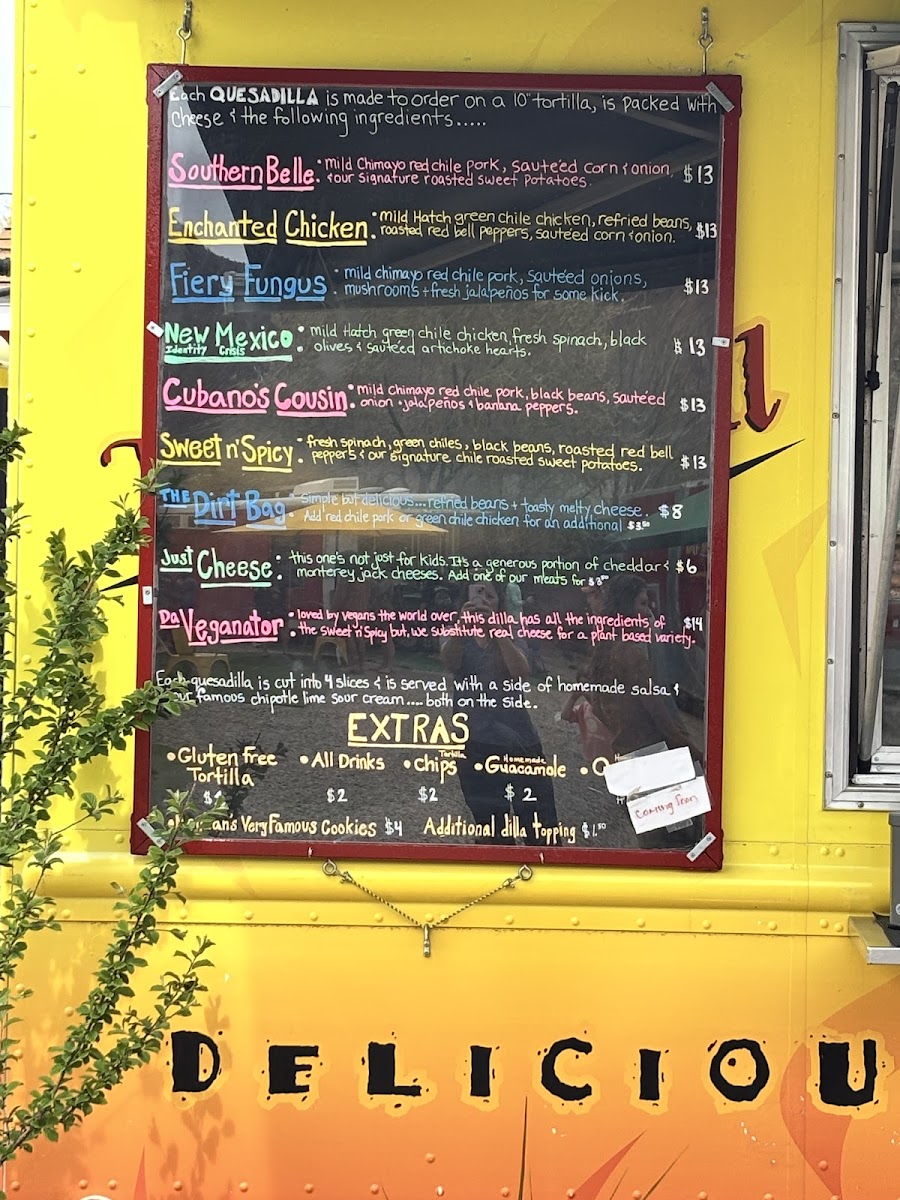 Each QUESADILLA is made to order on a 10" tortilla, is packed with
cheese & the following ingredients.....
Southern Belle: mild Chimayo red chile pork, sauteéd corn & onion, $13
& our signature roasted sweet potatoes.
Enchanted Chicken: mild Hatch green chile chicken, refried beans, $13
roasted red bell peppers, sauteéd corn & onion.
Fiery Fungus: mild chimayo red chile pork, sauteéd onions, $13
mushrooms + fresh jalapeños for some kick.
New Mexico: mild Hatch green chile chicken, fresh spinach, black $13
Identity Crisis olives & sauteéd artichoke hearts.
Cubano's Cousin: mild chimayo red chile pork, black beans, sauteéd $13
onion + jalapeños & banana peppers.
Sweet n' Spicy: fresh spinach, green chiles, black beans, roasted red bell $13
peppers & our signature chile roasted sweet potatoes.
THE Dirt Bag: Simple but delicious... refried beans + toasty melty cheese. $8
Add red chile pork or green chile chicken for an additional $3.50
Just Cheese: this one's not just for kids. It's a generous portion of cheddar & $6
monterey jack cheeses. Add one of our meats for $3.50
Da Veganator: loved by vegans the world over, this dilla has all the ingredients of $14
the sweet n' spicy but, we substitute real cheese for a plant based variety.
Each quesadilla is cut into 4 slices & is served with a side of homemade salsa &
our famous chipotle lime sour cream.... both on the side.
EXTRAS
• Gluten free Tortilla
• All Drinks $2
• Tortilla Chips $2
• Homemade Guacamole $2
Coming Soon
Very Famous Cookies $4 Additional dilla topping $1.50
DELICIOU